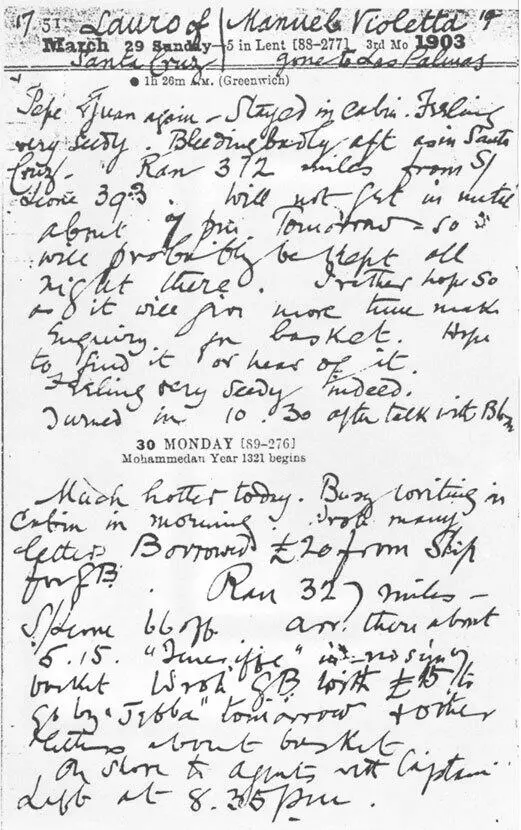 17.51 Lauro of / Manuel Violetta 19
March 29 Sunday—5 in Lent [88-277] 3rd Mo 1903
Santa Cruz gone to Las Palmas
● 1h 26m A.M. (Greenwich)
Pepe & Juan again – Stayed in cabin. Feeling
very seedy. Bleeding badly aft as in Santa
Cruz. Ran 372 miles from S/
Leone 393. Will not get in until
about 7 pm Tomorrow – so
will probably be kept all
night there. I rather hope so
as it will give more time make
Enquiry for basket. Hope
to find it or hear of it.
Feeling very seedy indeed.
Turned in 10.30 after talk with
30 MONDAY [89-276]
Mohammedan Year 1321 begins
Much hotter today. Busy writing in
Cabin in morning. Wrote many
letters Borrowed £20 from Ship
for GB. Ran 327 miles –
S/Leone 66 off arr. there about
5.15. "Teneriffe" in – no sign of
basket Wrote GB. with £15 to
go by "Jebba" tomorrow & other
letters about basket
On shore to agents with Captain
Left at 8.35 pm.